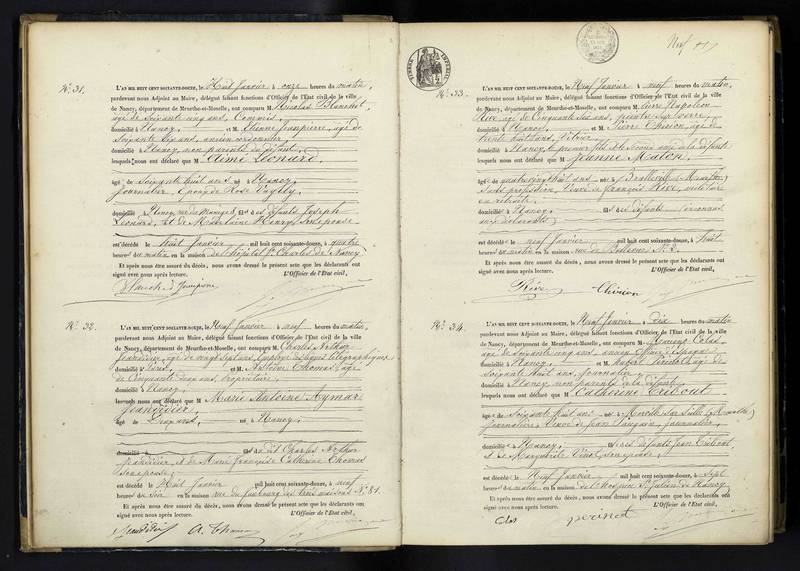 N° 31.
L'AN MIL HUIT CENT SOIXANTE-DOUZE, le Huit Janvier à onze heures du matin,
pardevant nous Adjoint au Maire, délégué faisant fonctions d'Officier de l'Etat civil de la ville
de Nancy, département de Meurthe-et-Moselle, ont comparu M. Nicolas Blanchot,
âgé de Soixante cinq ans, Commis,
domicilié à Nancy, et M. Etienne Jeanpierre, âgé de
Soixante cinq ans, ancien
domicilié à Nancy, non parents du défunt,
lesquels nous ont déclaré que M. Aimé Léonard,
âgé de Soixante huit ans né à Nancy
Journalier, Epoux de Rose
domicilié à Nancy, rue du Manège 8, fils des défunts Joseph
Léonard, et de Madelaine Henry, son épouse
est décédé le huit Janvier mil huit cent soixante-douze, à quatre
heures du matin en la maison de l'hôpital St Charles de Nancy
Et après nous être assuré du décès, nous avons dressé le présent acte que les déclarants ont
signé avec nous après lecture. L'Officier de l'Etat civil,
N° 32.
L'AN MIL HUIT CENT SOIXANTE-DOUZE, le Neuf Janvier à neuf heures du matin,
pardevant nous Adjoint au Maire, délégué faisant fonctions d'Officier de l'Etat civil de la ville
de Nancy, département de Meurthe-et-Moselle, ont comparu M. Charles Arthur
Jeandidier, âgé de vingt sept ans, Employé des lignes télégraphiques
domicilié à Paris, et M. Antoine Thomas, âgé
de Cinquante deux ans, propriétaire,
domicilié à Nancy,
lesquels nous ont déclaré que M. Marie Antoine Aymar
Jeandidier
âgé de Deux ans, né à Nancy,
domicilié à fils dudit Charles Arthur
Jeandidier, et de Marie Françoise Catherine Thomas
son épouse
est décédé le Huit Janvier mil huit cent soixante-douze, à neuf
heures du soir en la maison rue du faubourg des trois maisons N° 81.
Et après nous être assuré du décès, nous avons dressé le présent acte que les déclarants ont
signé avec nous après lecture. L'Officier de l'Etat civil,
Jeandidier A. Thomas
Neuf
N° 33.
L'AN MIL HUIT CENT SOIXANTE-DOUZE, le Neuf Janvier à neuf heures du matin,
pardevant nous Adjoint au Maire, délégué faisant fonctions d'Officier de l'Etat civil de la ville
de Nancy, département de Meurthe-et-Moselle, ont comparu M. Pierre Napoléon
Rive, âgé de Cinquante six ans, peintre sur verre,
domicilié à Nancy, et M. Pierre Chirion, âgé de
trente huit ans,
domicilié à Nancy, le premier fils et le second ami de la défunte
lesquels nous ont déclaré que M. Jeanne Maton,
âgé de quatre vingt huit ans née à
sans profession, Veuve de François Rive, militaire
en retraite,
domicilié à Nancy, fille des défunts inconnus
aux déclarants
est décédé le neuf Janvier mil huit cent soixante-douze, à huit
heures du matin en la maison rue de N° 2.
Et après nous être assuré du décès, nous avons dressé le présent acte que les déclarants ont
signé avec nous après lecture. L'Officier de l'Etat civil,
Rive Chirion
N° 34.
L'AN MIL HUIT CENT SOIXANTE-DOUZE, le Neuf Janvier à Dix heures du matin
pardevant nous Adjoint au Maire, délégué faisant fonctions d'Officier de l'Etat civil de la ville
de Nancy, département de Meurthe-et-Moselle, ont comparu M. Colas,
âgé de Soixante cinq ans, ancien
domicilié à Nancy, et M. Hubert Perinot, âgé de
Soixante huit ans, journalier,
domicilié à Nancy non parents de la défunte,
lesquels nous ont déclaré que M. Catherine Tribout
âgé de Soixante huit ans née à
Journalière, Veuve de Jean journalier,
domicilié à Nancy, fille des défunts Jean Tribout,
et de Marguerite son épouse
est décédé le Neuf Janvier mil huit cent soixante-douze, à Sept
heures du matin en la maison de l'hospice St Julien de Nancy
Et après nous être assuré du décès, nous avons dressé le présent acte que les déclarants ont
signé avec nous après lecture. L'Officier de l'Etat civil,
perinot